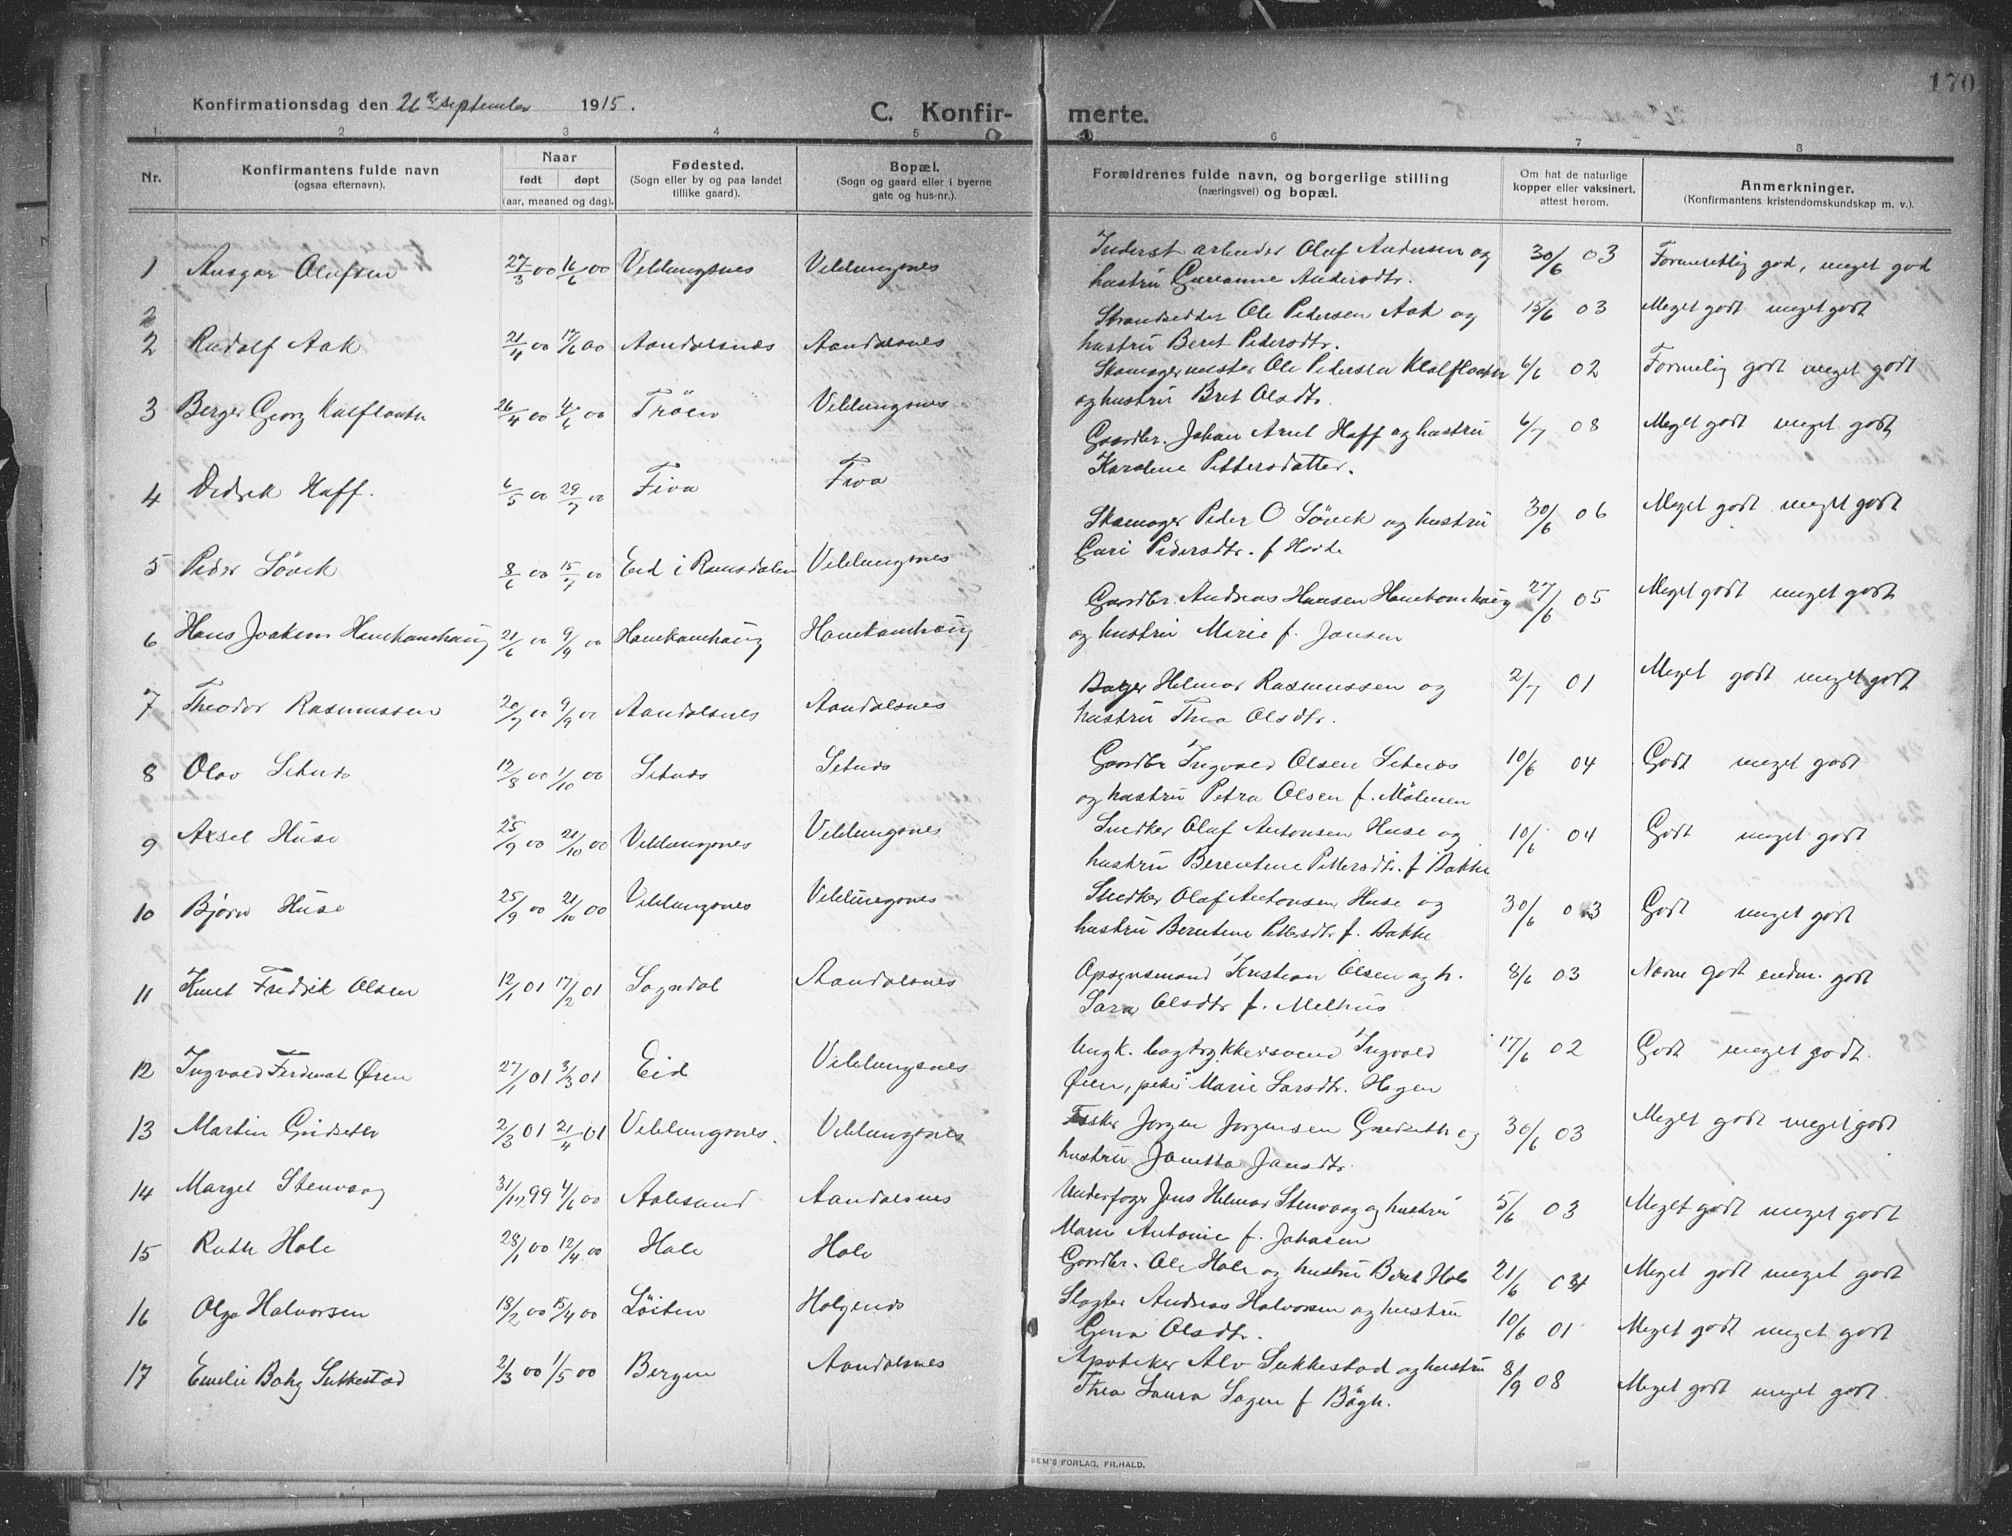 170
Konfirmationsdag den 26de september 1915.
C. Konfir- merte.
1. 2 3 4 5 6 7 8
Nr. Konfirmantens fulde navn (ogsaa efternavn). Naar født døpt (aar, maaned og dag). Fødested. (Sogn eller by og paa landet tillike gaard). Bopæl. (Sogn og gaard eller i byerne gate og hus-nr.). Forældrenes fulde navn, og borgerlige stilling (næringsvei) og bopæl. Om hat de naturlige kopper eller vaksinert, attest herom. Anmerkninger. (Konfirmantens kristendomskundskap m. v.).
1 Ansgar Olufsen 27/3 00 16/6 00 Veblungsnes Veblungsnes Inderst arbeider Oluf Andersen og 30/6 03 meget god
hustru Andersdtr.
2
2 Rudolf Aak 21/4 00 17/6 00 Aandalsnæs Aandalsnes Strandsidder Ole Pedersen Aak og 15/6 03 Meget godt meget godt
hustru Beret Pedersdtr.
3 Berger Georg Kalfloata 26/4 00 4/6 00 Trøen Veblungsnes Skomagermester Ole Pedersen 6/6 02 Formelig godt meget godt
og hustru Bret Olsdtr.
4 Didrik Haff. 6/5 00 29/7 00 Fiva Fiva Gaardbr. Johan Arnt Haff og hustru 6/7 08 Meget godt meget godt
Karoline Pettersdatter.
5 Peder Søvik 8/6 00 15/7 00 Eid i Romsdalen Veblungsnes Skomager Peder O Søvik og hustru 30/6 06 Meget godt meget godt
Guri Pedersdtr. f Hovde
6 Hans Joakim Hanekamhaug 21/6 00 9/9 00 Hanekamhaug Hanekamhaug Gaardbr. Andreas Hansen Hanekamhaug 27/6 05 Meget godt meget godt
og hustru Marie f. Jansen
7 Theodor Rasmussen 20/7 00 9/9 00 Aandalsnes Aandalsnes Bager Helmar Rasmussen og 2/7 01 Meget godt meget godt
hustru Thea Olsdtr.
8 Olav Setnes 17/8 00 1/10 00 Setnes Setnes Gaardbr Ingvald Olsen Setnes 10/6 04 Godt meget godt
og hustru Petra Olsen f. Mölmen
9 Axsel Huse 25/9 00 21/10 00 Veblungsnes Veblungsnes Snedker Oluf Antonsen Huse og 10/6 04 Godt meget godt
hustru Berentine Pettersdtr. f Bakke
10 Bjørn Huse 25/9 00 21/10 00 Veblungsnes Veblungsnes Snedker Olaf Antonsen Huse og 30/6 03 Godt meget godt
hustru Berntine Pettersdtr f. Bakke
11 Knut Fredrik Olsen 12/1 01 17/2 01 Sogndal Aandalsnes Opsynsmand Kristian Olsen og h. 8/6 03 Næsten godt godt
Sara Olsdtr f. Melhus
12 Ingvald Ferdinat Øren 27/1 01 3/3 01 Eid Veblungsnes Ungk. bogtrykkersvend Ingvald 17/6 02 Godt meget godt.
Øien, pike Marie Larsdtr. Hegen
13 Martin Gridsetlv 2/3 01 21/4 01 Veblungsnes. Veblungsnes Fisker Jørgen Jørgensen og 30/6 03 Meget godt meget godt
hustru Janetta Jansdtr.
14 Marget Stenvaag 31/12 99 4/6 00 Aalesund Aandalsnes Underfoget Jens Helmar Stenvaag og hustru 5/6 03 Meget godt meget godt
Marie Antonie f. Johasen
15 Ruth Hole 28/1 00 12/4 00 Hole Hole Gaardbr. Ole Hole og hustru Beret Hole 21/6 04 Meget godt meget godt
16 Olga Halvorsen 18/2 00 15/4 00 Löiten Halgenes Slagter Andreas Halvorsen og hustru 10/6 01 Meget godt meget godt
Gina Olsdtr.
17 Emelie Bøhg Sukkestad 2/3 00 1/5 00 Bergen Aandalsnes Apoteker Alv Sukkestad og hustru 8/9 08 Meget godt meget godt.
Thea Laura Sagen f Bøgh.
FORLAG, FR.HALD.